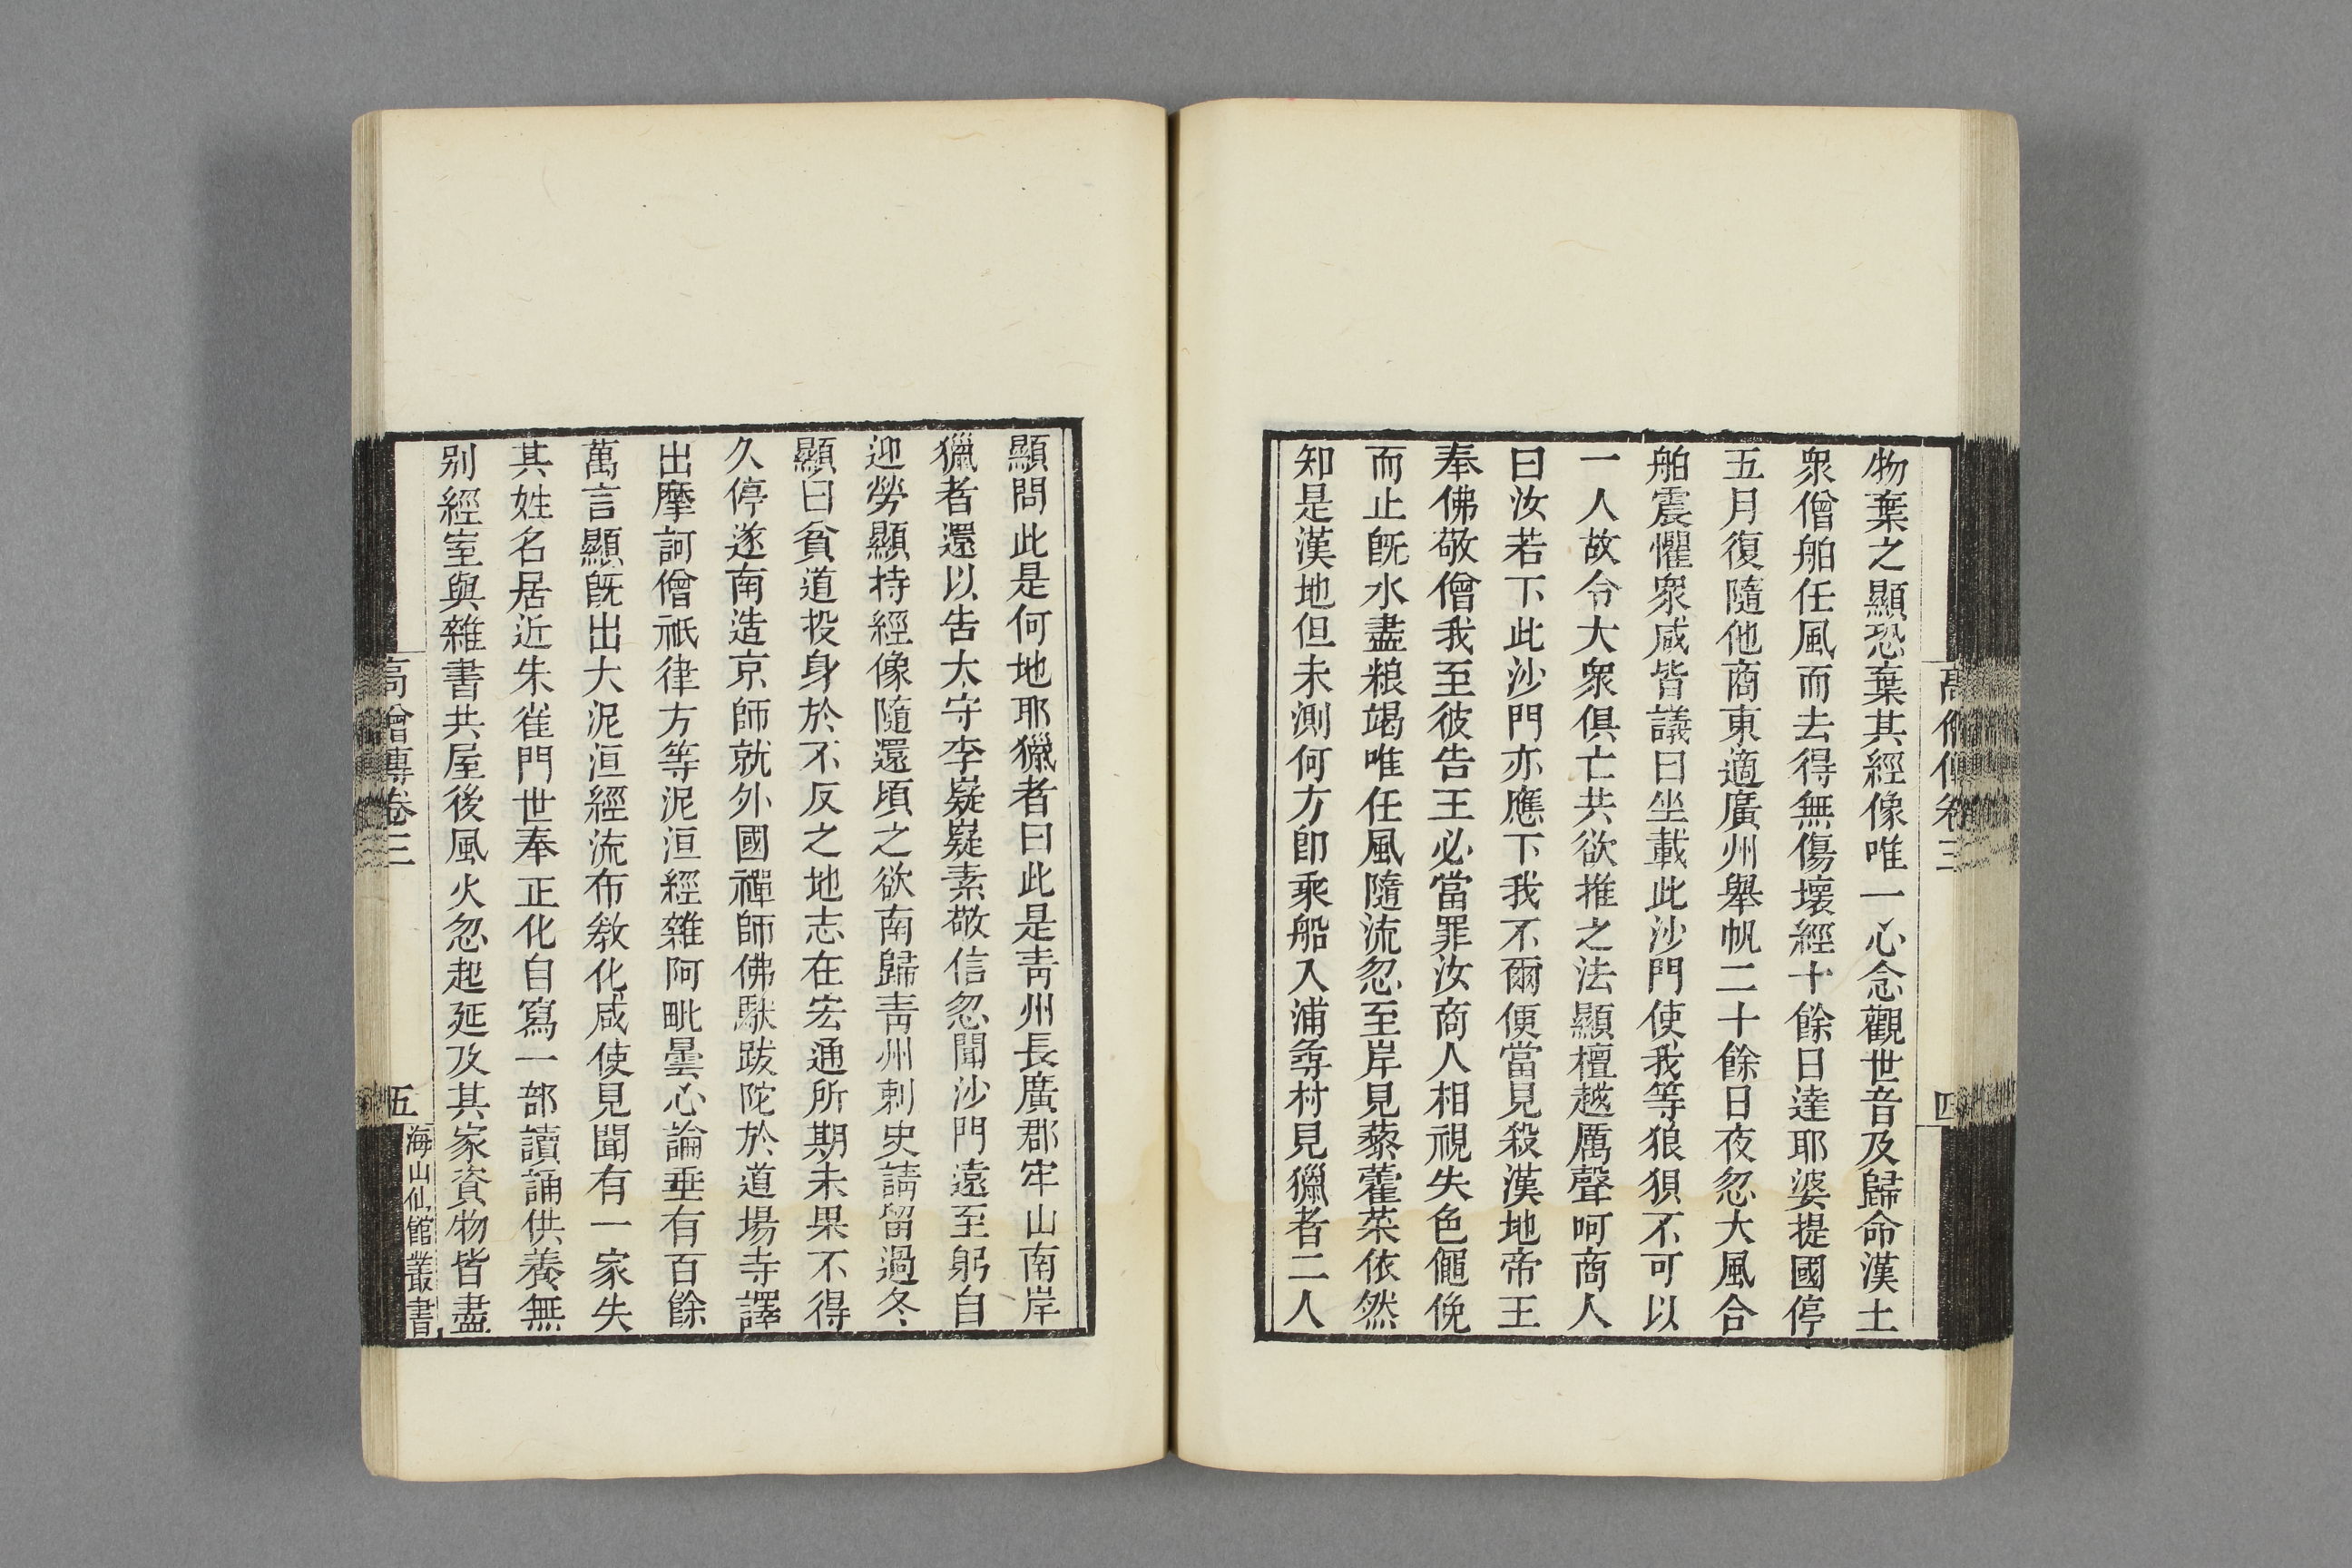 高僧傳卷三
四
物棄之顯恐棄其經像唯一心念觀世音及歸命漢土
衆僧舶任風而去得無傷壞經十餘日達耶婆提國停
五月復隨他商東適廣州舉帆二十餘日夜忽大風合
舶震懼衆咸皆議曰坐載此沙門使我等狼狽不可以
一人故令大衆俱亡共欲推之法顯檀越厲聲呵商人
曰汝若下此沙門亦應下我不爾便當見殺漢地帝王
奉佛敬僧我至彼告王必當罪汝商人相視失色僶俛
而止旣水盡粮竭唯任風隨流忽至岸見藜藿菜依然
知是漢地但未測何方卽乘船入浦尋村見獵者二人
顯問此是何地耶獵者曰此是靑州長廣郡牢山南岸
獵者還以告太守李嶷嶷素敬信忽聞沙門遠至躬自
迎勞顯持經像隨還頃之欲南歸靑州刺史請留過冬
顯曰貧道投身於不反之地志在宏通所期未果不得
久停遂南造京師就外國禪師佛馱跋陀於道場寺譯
出摩訶僧祇律方等泥洹經雜阿毗曇心論垂有百餘
萬言顯旣出大泥洹經流布敎化咸使見聞有一家失
其姓名居近朱雀門世奉正化自寫一部讀誦供養無
别經室與雜書共屋後風火忽起延及其家資物皆盡
高僧傳卷三
五
海山仙館叢書